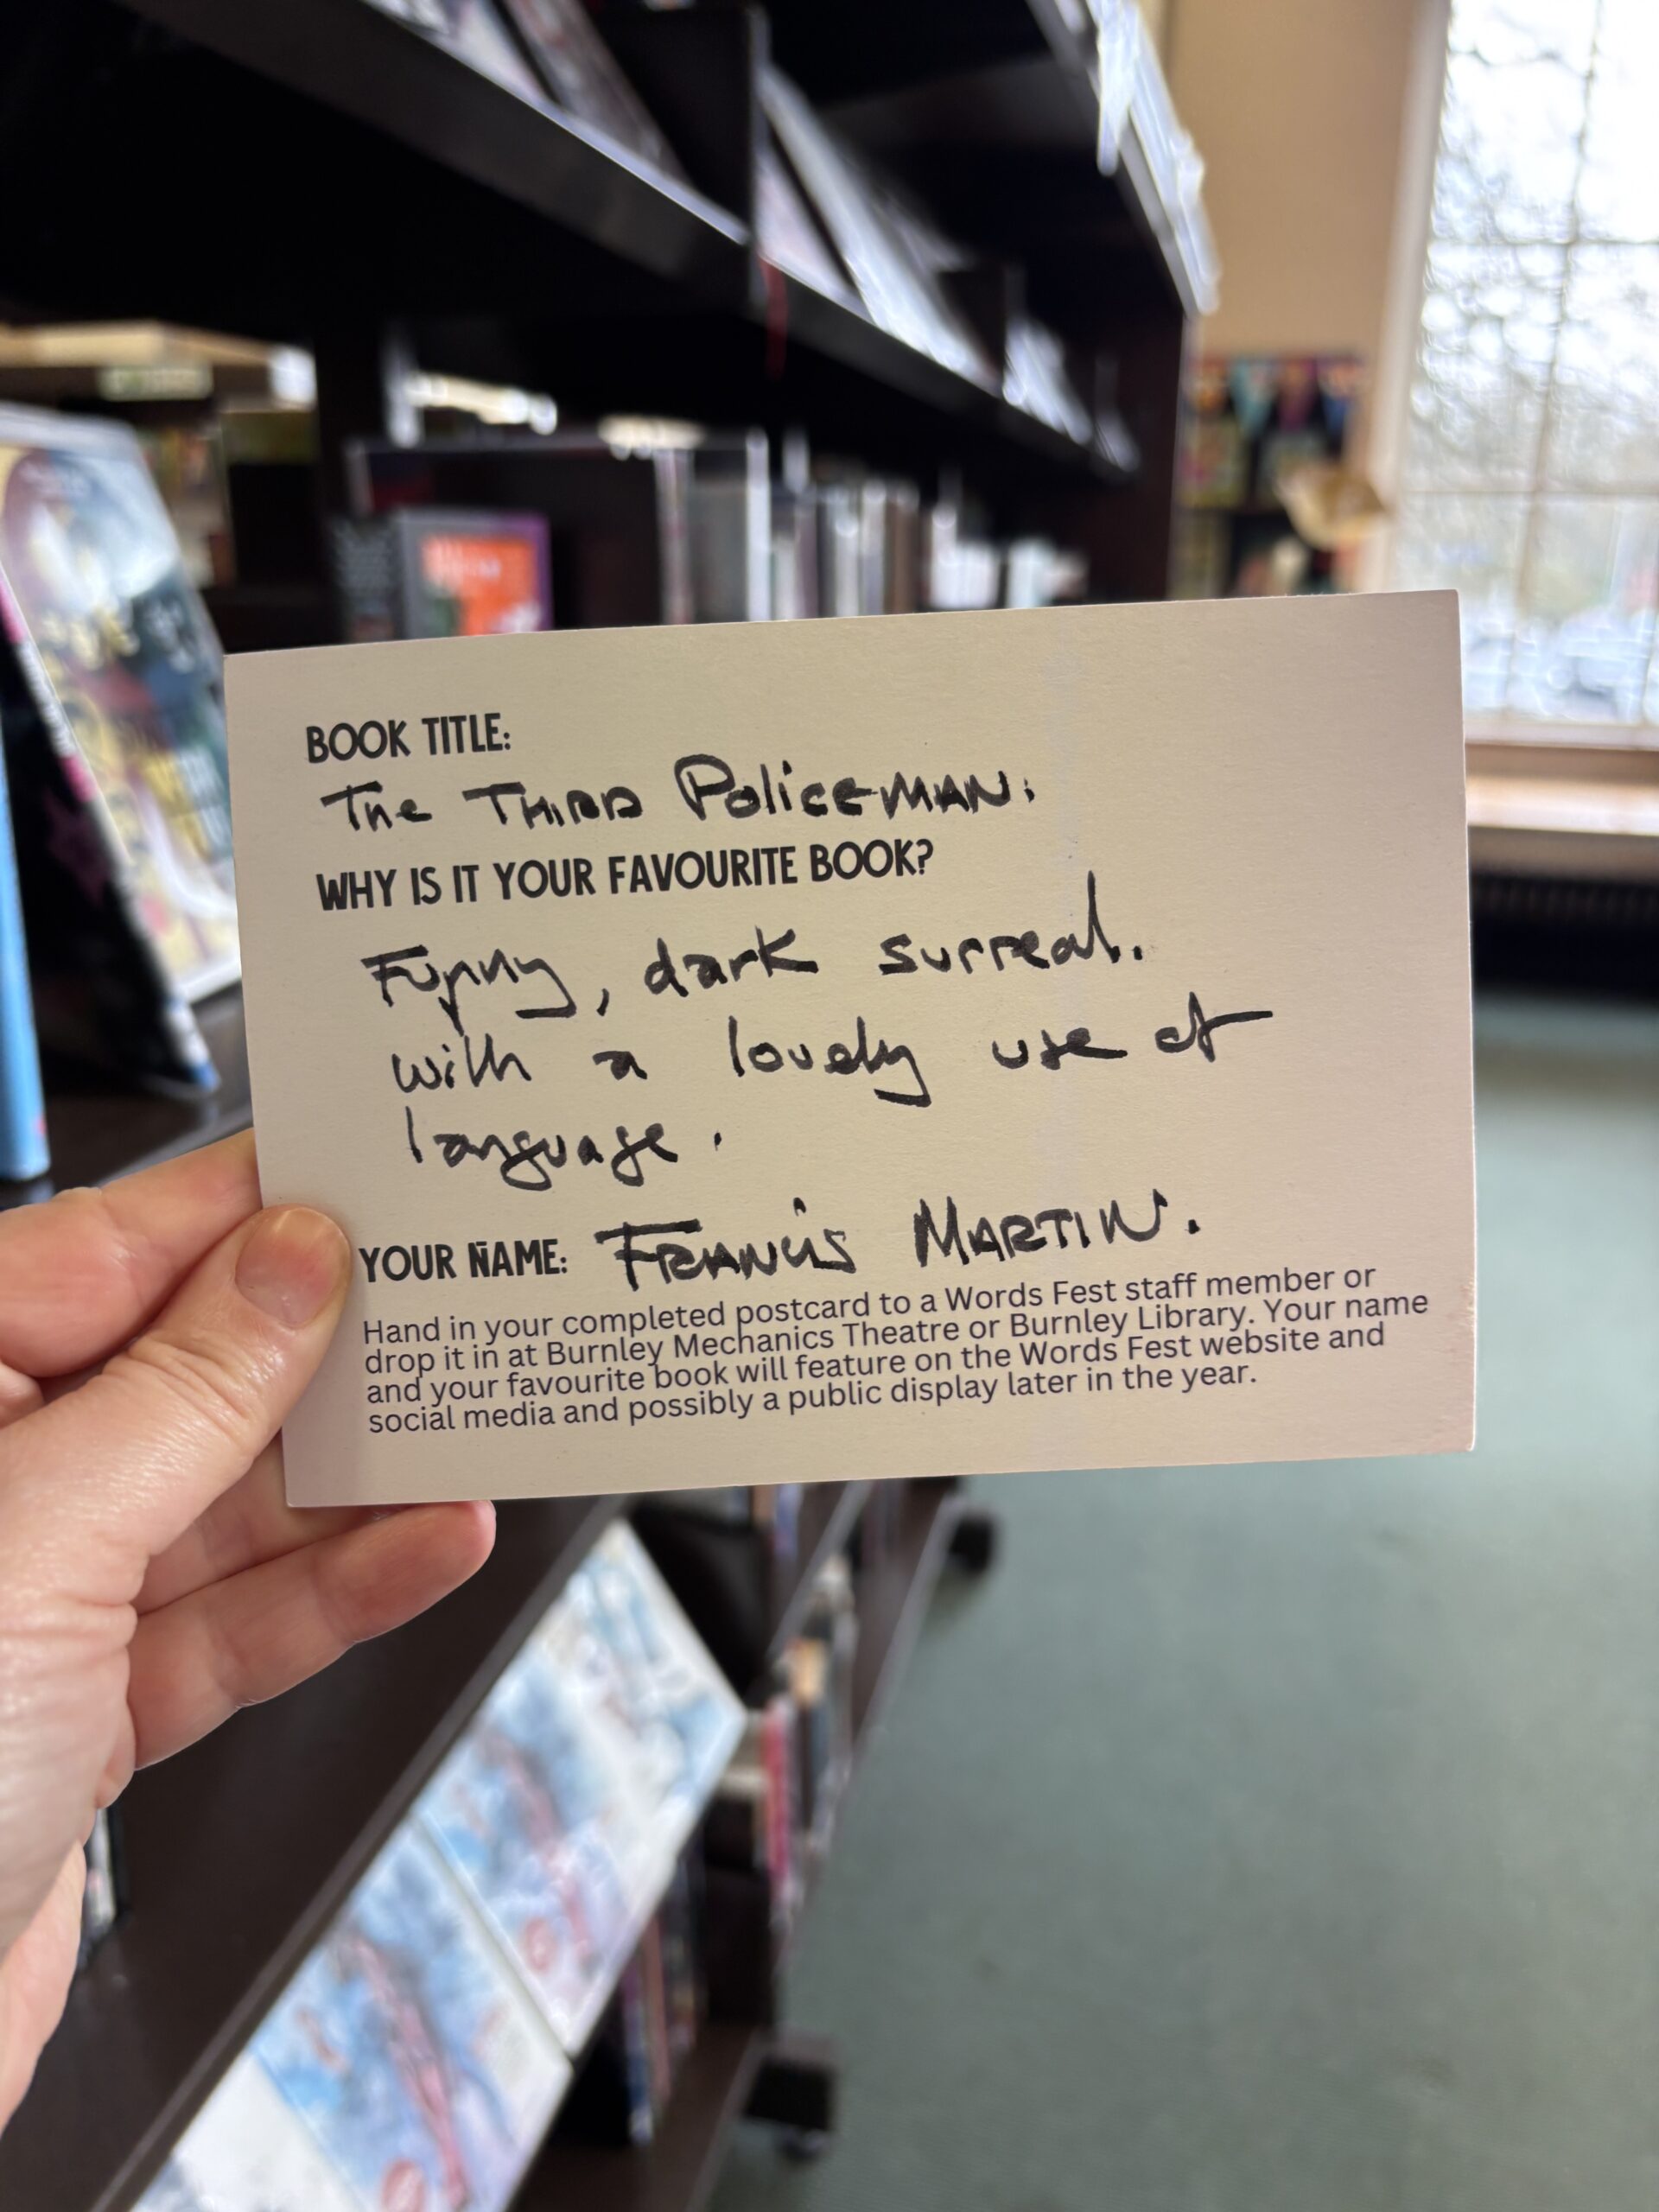 BOOK TITLE:
The THIRD POLICEMAN.
WHY IS IT YOUR FAVOURITE BOOK?
Funny, dark surreal.
with a lovely use of
language.
YOUR NAME: FRANCIS MARTIN.
Hand in your completed postcard to a Words Fest staff member or
drop it in at Burnley Mechanics Theatre or Burnley Library. Your name
and your favourite book will feature on the Words Fest website and
social media and possibly a public display later in the year.